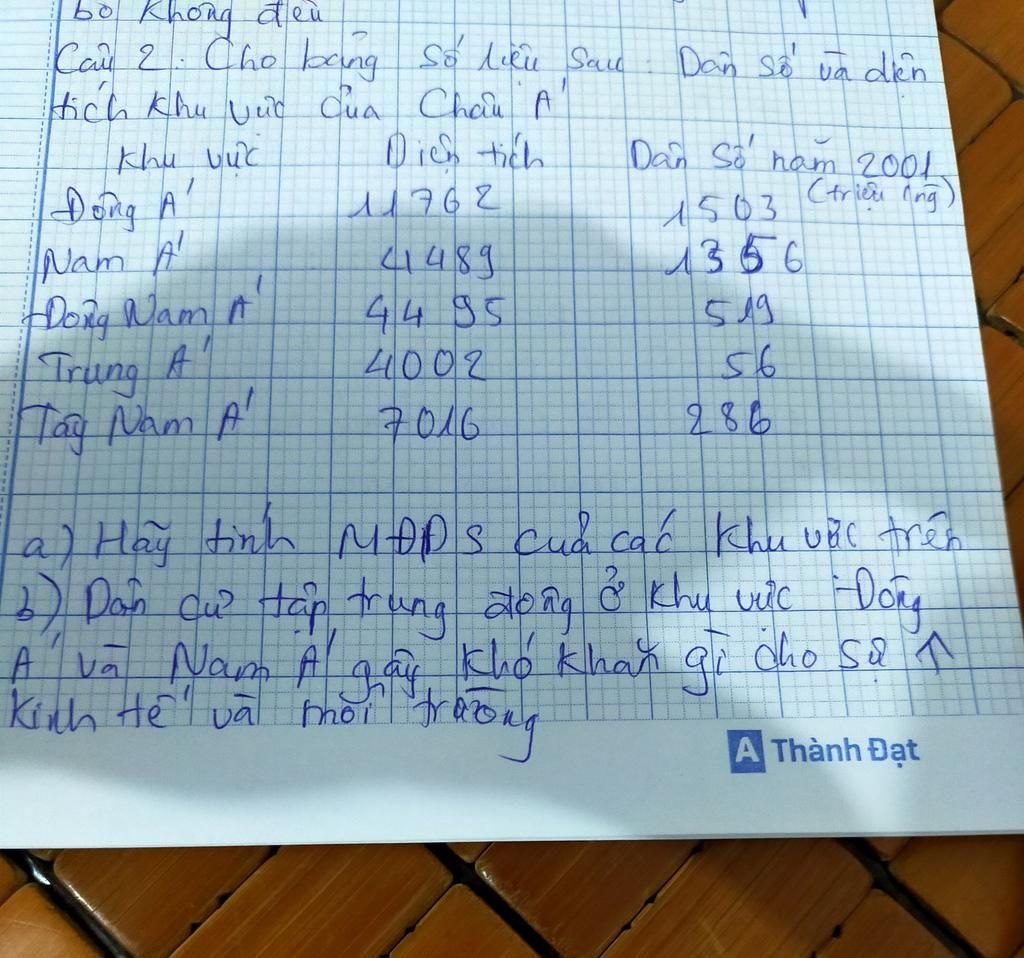 bố không đều
Câu 2: Cho bảng số liệu sau: Dân số và diện
tích khu vực của Châu Á
Khu vực Diện tích Dân số năm 2001
(triệu ng)
Đông Á 11762 1503
Nam Á 4489 1356
Đông Nam Á 4495 519
Trung Á 4002 56
Tây Nam Á 7016 286
a) Hãy tính MĐDS của các khu vực trên
b) Dân cư tập trung đông ở khu vực Đông
Á và Nam Á gây khó khăn gì cho sự ↑
kinh tế và môi trường
A Thành Đạt